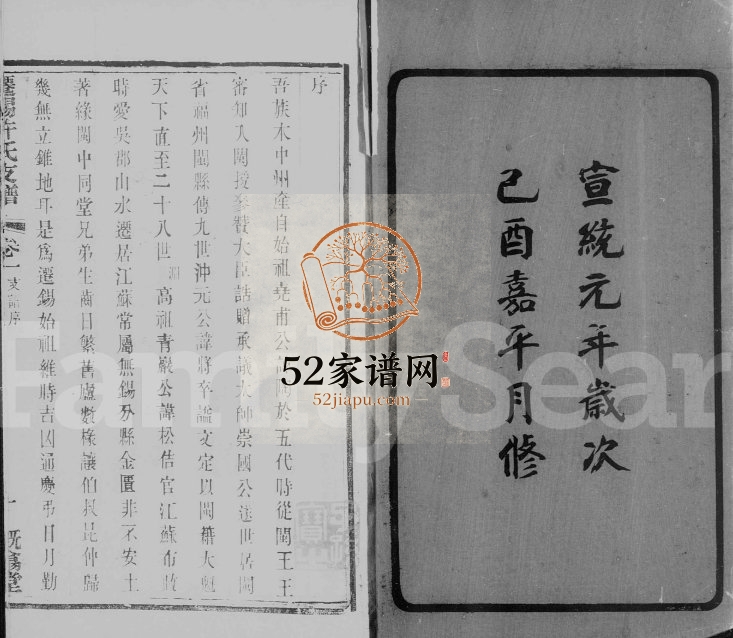 宣統元年歲次
己酉嘉平月修
序
吾族本中州產自始祖堯甫公 於五代時從閩王王
審知入閩授 贊大 誥贈承 大師崇國公 世居閩
省福州閩縣傳九世沖元公諱將卒諡文定以閩籍大魁
天下直至二十八世 高祖青巖公諱松佶官江蘇布政
時愛吳郡山水遷居江蘇常屬無錫分縣金匱非不安土
著緣閩中同堂兄弟生齒日繁舊廬數椽讓伯叔昆仲歸
幾無立錐地耳是為遷錫始祖維時吉凶通慶弔日月勤
遷錫許氏支譜
卷一支譜序
一
52家谱网
52jiapu.com
Family Sear